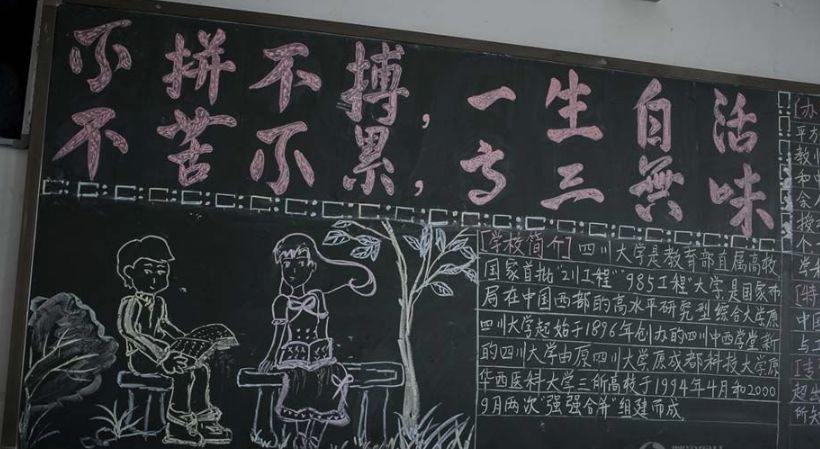 不拼不搏，一生白活
不苦不累，高三無味
[学校简介] 四川大学是教育部直属高校
国家首批"211工程""985工程"大学是国家布
局在中国西部的高水平研究型综合大学原
四川大学起始于1896年创办的四川中西学堂新
的四川大学由原四川大学原成都科技大学原
华西医科大学三所高校于1994年4月和2000
9月两次"强强合并"组建而成
[办
平方
教师
和中
会
授
个
学科
[特
中国
与
超出
所知